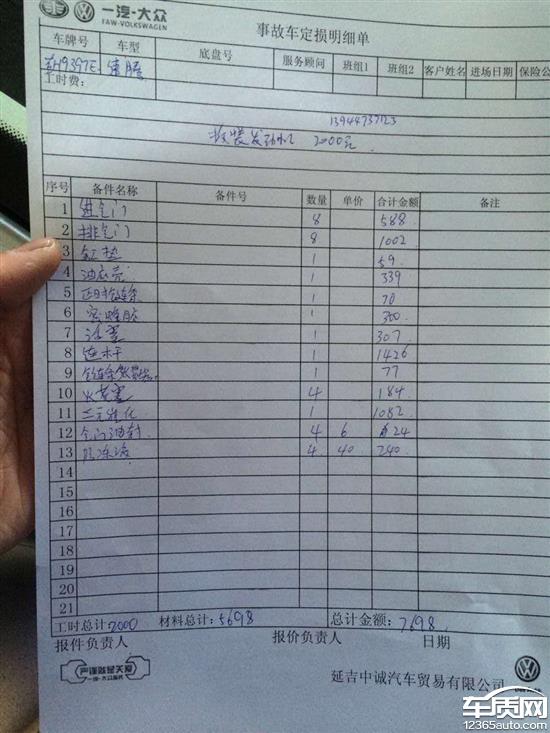 一汽-大众
FAW-VOLKSWAGEN
事故车定损明细单
车牌号 车型 底盘号 服务顾问 班组1 班组2 客户姓名 进场日期 保险公
H9397E 速腾
工时费:
13944737123
拆装发动机 2000元
序号 备件名称 备件号 数量 单价 合计金额 备注
1 进气门 8 588
2 排气门 8 1002
3 缸垫 1 59
4 油底壳 1 339
5 正时链条 1 70
6 密峰胶 1 300
7 活塞 1 307
8 连杆 1 1426
9 1 77
10 火花塞 4 184
11 三元催化 1 1082
12 气门油封 4 6 24
13 防冻液 4 40 240
14
15
16
17
18
19
20
21
工时总计:2000 材料总计:5698 总计金额:7698
报件负责人 报价负责人 日期
严谨就是关爱
一汽-大众服务
延吉中诚汽车贸易有限公司
车质网
12365auto.com